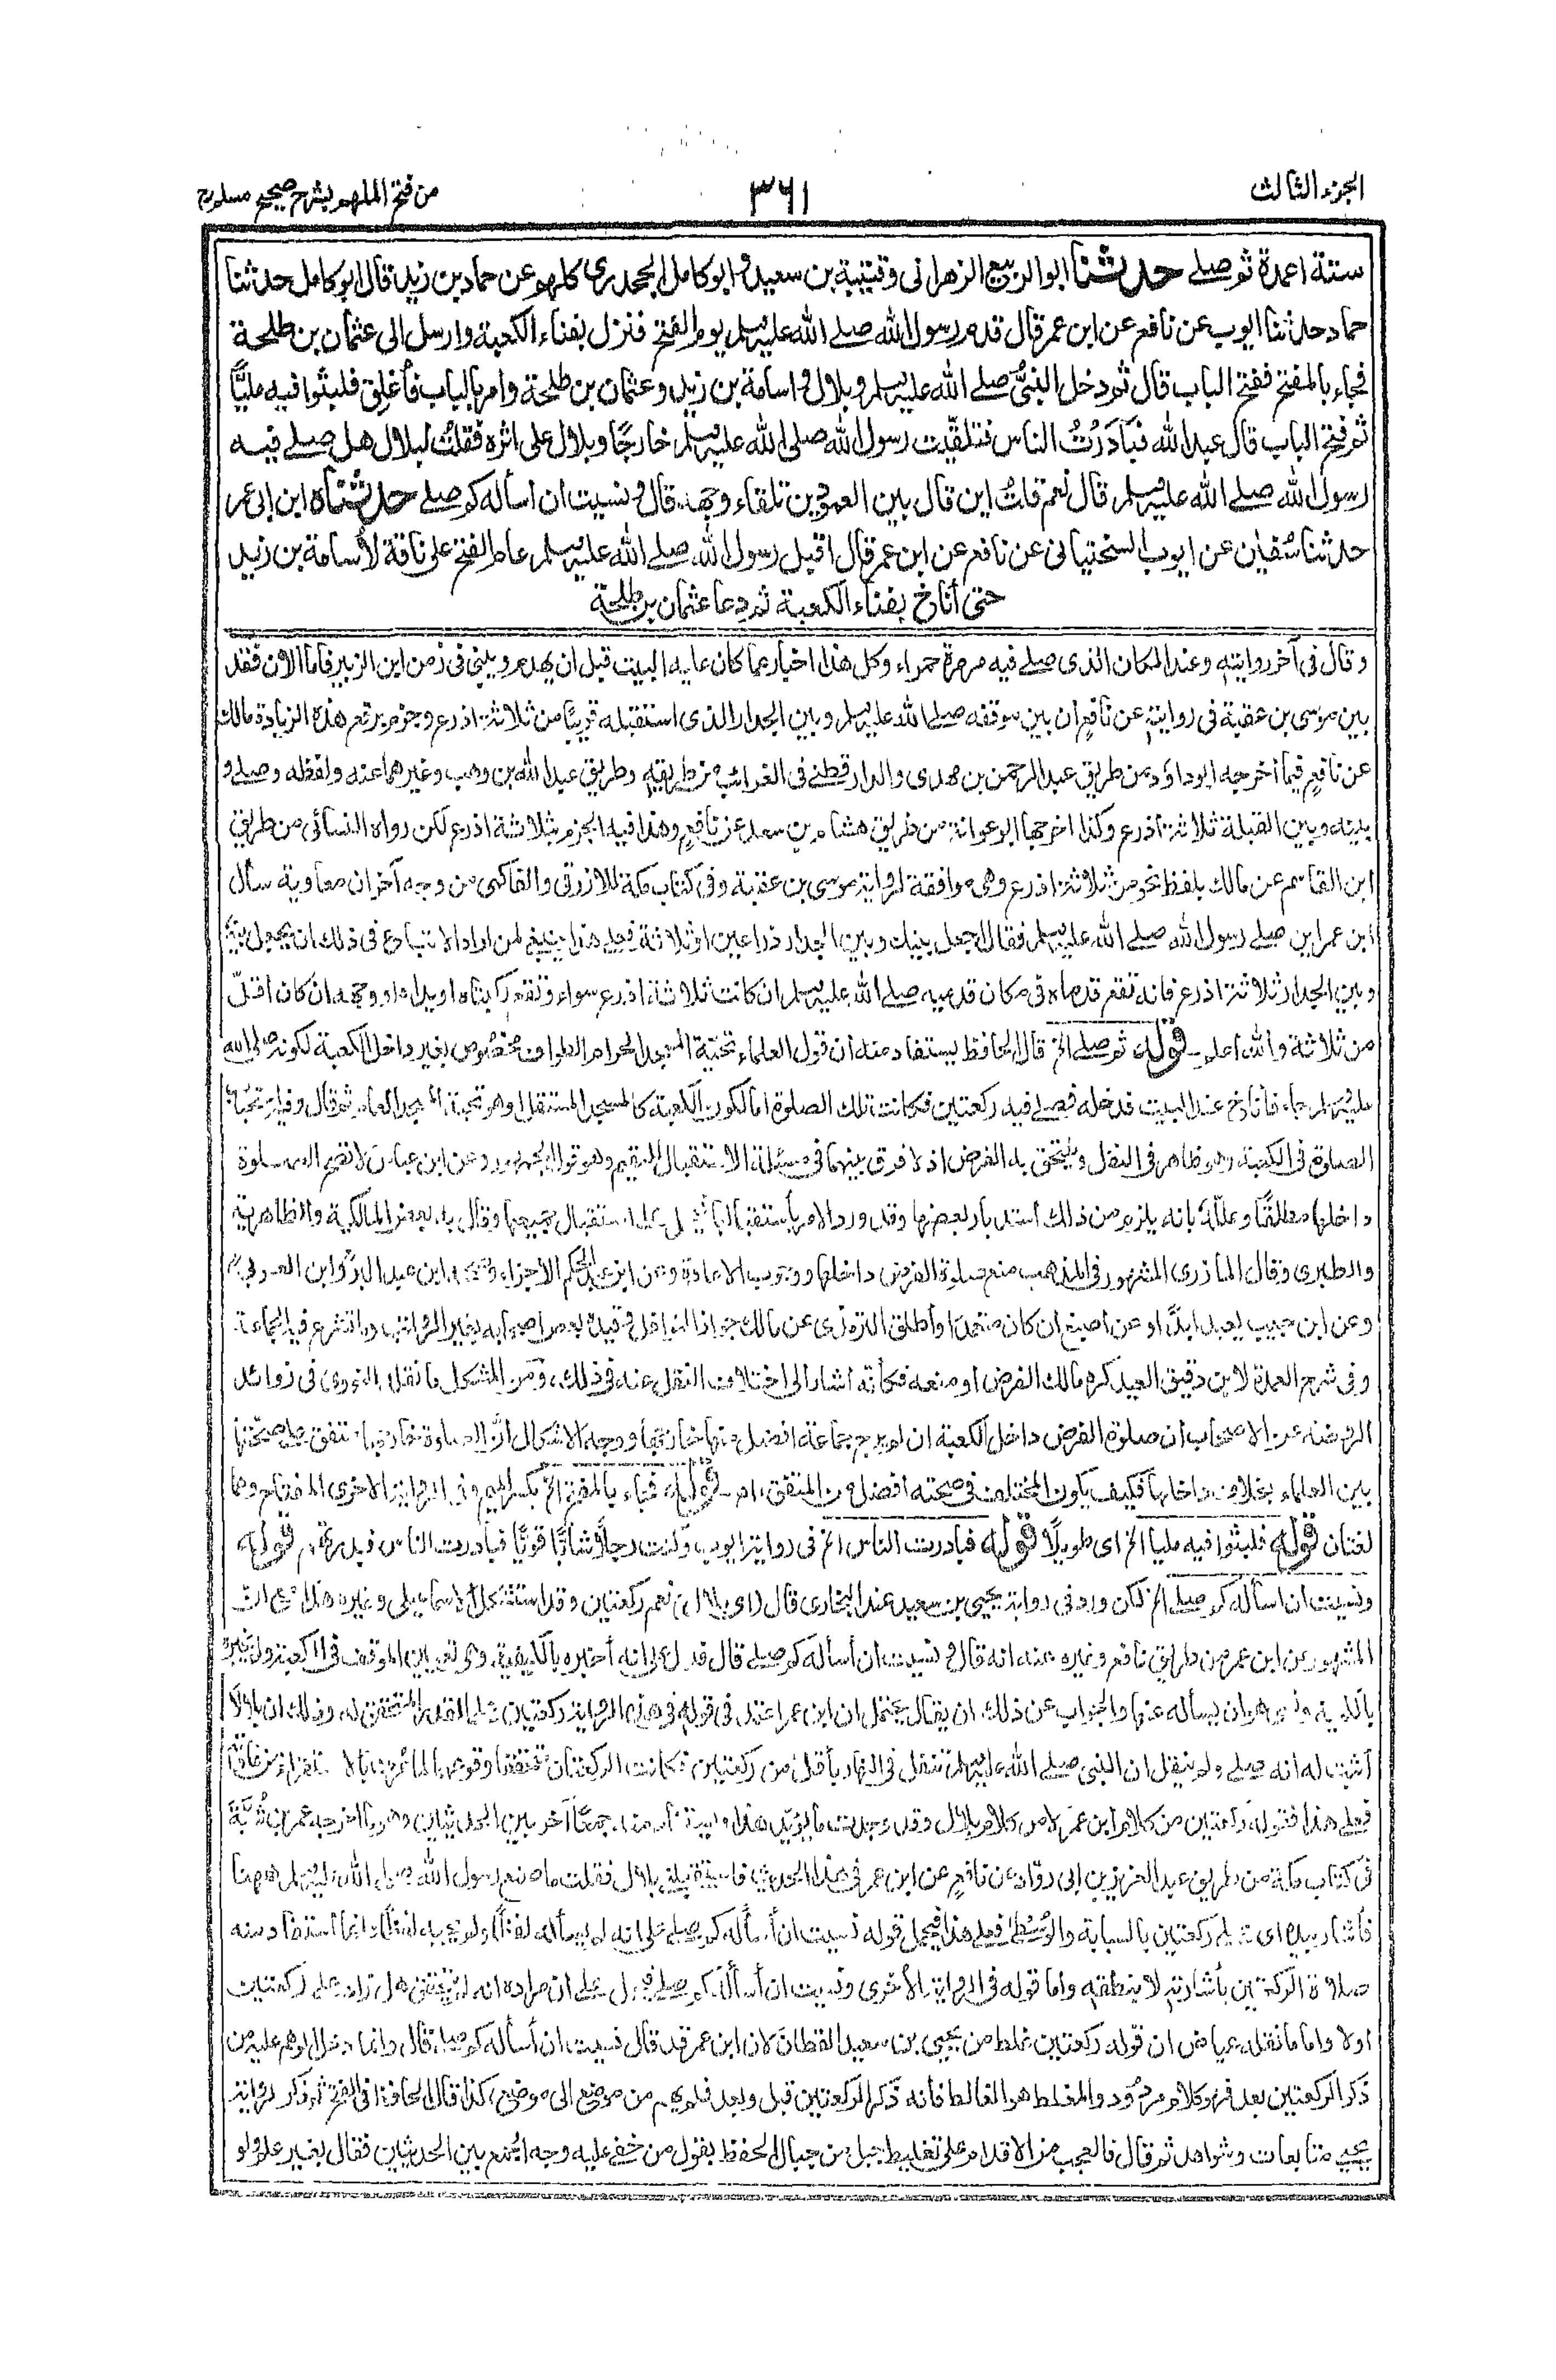 الجزء الثالث
٣٦١
من فتح الملهم بشرح صحيح مسلم ج
ستة اعمدة ثم صلے حدثنا ابوالربيع الزهرانى وقتيبة بن سعيد وابوكامل الجحدرى كلهم عن حماد بن زيد قال ابوكامل حدثنا
حماد حدثنا ايوب عن نافع عن ابن عمر قال قدم رسول الله صلے الله عليه وسلم يوم الفتح فنزل بفناء الكعبة وارسل الى عثمان بن طلحة
فجاء بالمفتح ففتح الباب قال ثم دخل النبىُّ صلے الله عليه وسلم وبلال واسامة بن زيد وعثمان بن طلحة وامر بالباب فأُغلِق فلبثوا فيه مليًّا
ثم فتح الباب قال عبدالله فبَادَرْتُ الناس فتلقّيت رسول الله صلى الله عليه وسلم خارجًا وبلال على اثره فقلتُ لبلال هل صلے فيه
رسول الله صلے الله عليه وسلم قال نعم قلتُ اين قال بين العمودين تلقاء وجهه قال ونسيت ان اسأله كم صلے حدثناه ابن ابى عمر
حدثنا سُفين عن ايوب السختيانى عن نافع عن ابن عمر قال اقبل رسول الله صلے الله عليه وسلم عام الفتح على ناقة لأسامة بن زيد
حتى أناخ بفناء الكعبة ثم دعا عثمان بن طلحة
وقال فى آخر روايته وعند المكان الذى صلے فيه مرمرة حمراء وكل هذا اخبار عما كان عليه البيت قبل ان يهدم ويبنى فى زمن ابن الزبير فأما الأن فقد
بين موسى بن عقبة فى روايته عن نافع ان بين موقفه صلے الله عليه وسلم وبين الجدار الذى استقبله قريبًا من ثلاثة اذرع وجزم برفع هذه الزيادة مالك
عن نافع فيما أخرجه ابوداؤد من طريق عبدالرحمن بن مهدى والدارقطنے فى الغرائب من طريقه وطريق عبدالله بن وهب وغيرهما عنه ولفظه وصلے و
بينه وبين القبلة ثلاثة اذرع وكذا اخرجها ابوعوانة من طريق هشام بن سعد عن نافع وهذا فيه الجزم بثلاثة اذرع لكن رواه النسائى من طريق
ابن القاسم عن مالك بلفظ نحو من ثلاثة اذرع وهى موافقة لرواية موسى بن عقبة وفى كتاب مكة للازرقى والفاكهى من وجه آخر ان معاوية سأل
ابن عمر اين صلے رسول الله صلے الله عليه وسلم فقال اجعل بينك وبين الجدار ذراعين او ثلاثة فعلے هذا ينبغى لمن اراد الاتباع فى ذلك ان يجعل بينه
وبين الجدار ثلاثة اذرع فانه تقع قدماه فى مكان قدميه صلے الله عليه وسلم ان كانت ثلاثة اذرع سواء وتقع ركبتاه او يداه او وجهه ان كان اقلّ
من ثلاثة والله اعلم قوله ثم صلے الخ قال الحافظ يستفاد منه ان قول العلماء تحيّة المسجد الحرام الطواف مخصوص بغير داخل الكعبة لكونه صلى الله
عليه وسلم جاء فأناخ عند البيت فدخله فصلے فيه ركعتين فكانت تلك الصلوة اما لكون الكعبة كالمسجد المستقل او هو تحية المسجد العام ثم قال وفيه استحباب
الصلوة فى الكعبة وهو ظاهر فى النفل ويلتحق به الفرض اذ لا فرق بينهما فى مسئلة الاستقبال للمقيم وهو قول الجمهور وعن ابن عباس لا تصح الصلوة
داخلها مطلقًا وعلله بانه يلزم من ذلك استدبار بعضها وقد ورد الامر باستقبالها فيحمل على استقبال جميعها وقال به بعض المالكية والظاهرية
والطبرى وقال المازرى المشهور فى المذهب منع صلوة الفرض داخلها ووجوب الاعادة وعن ابن عبد الحكم الأجزاء وصححه ابن عبد البر وابن العربى
وعن ابن حبيب يعيد ابدًا وعن اصبغ ان كان متعمدًا وأطلق الترمذى عن مالك جواز النوافل وقيده بعض اصحابه بغير الرواتب وما تشرع فيه الجماعة
وفى شرح العمدة لابن دقيق العيد كره مالك الفرض او منعه فكأنه اشار الى اختلاف النقل عنه فى ذلك، ومن المشكل ما نقله النووى فى زوائد
الروضة عن الاصحاب ان صلوة الفرض داخل الكعبة ان لم يرج جماعة افضل منها خارجها ووجه الاشكال انّ الصلوة خارجها متفق على صحتها
بين العلماء بخلاف داخلها فكيف يكون المختلف فى صحته افضل من المتفق، اھ قوله فجاء بالمفتح الخ بكسر الميم وفى الرواية الاخرى المفتاح وهما
لغتان قوله فلبثوا فيه مليا الخ اى طويلًا قوله فبادرت الناس الخ فى رواية ايوب وكنت رجلًا شابًا قويًا فبادرت الناس فبدرتهم قوله
ونسيت ان اسأله كم صلے الخ لكن ورد فى رواية يحيى بن سعيد عند البخارى قال (اى بلال) نعم ركعتين وقد استشكل الاسماعيلى وغيره هذا مع ان
المشهور عن ابن عمر من طريق نافع وغيره عنه انه قال ونسيت ان أسأله كم صلے قال فدل على انه أخبره بالكيفية وهى تعيين الموقف فى الكعبة ولم يخبره
بالكمية ونسى هو ان يسأله عنها والجواب عن ذلك ان يقال يحتمل ان ابن عمر اعتمد فى قوله فى هذه الرواية ركعتين على القدر المتحقق له، وذلك ان بلالًا
أثبت له انه صلے ولم ينقل ان النبى صلے الله عليه وسلم تنفل فى النهار بأقل من ركعتين فكانت الركعتان متحققا وقوعهما لما عرف بالاستقراء من عادته
فعلے هذا فقوله ركعتين من كلام ابن عمر لا من كلام بلال وقد وجدت ما يؤيد هذا ويستفاد منه جمعًا آخر بين الحديثين وهو ما اخرجه عمر بن شَبَّة
فى كتاب مكة من طريق عبد العزيز بن ابى روّاد عن نافع عن ابن عمر فى هذا الحديث فاستقبلنى بلال فقلت ما صنع رسول الله صلى الله عليه وسلم ههنا
فأشار بيده اى صلے ركعتين بالسبابة والوُسْطٰى فعلے هذا فيحمل قوله نسيت ان أسأله كم صلے على انه لم يسأله لفظًا ولم يجبه لفظًا وانما استفاد منه
صلاة الركعتين بأشارته لا بنطقه واما قوله فى الرواية الأخرى ونسيت ان أسأله كم صلے فيحمل على ان مراده انه لم يتحقق هل زاد على ركعتين
اولا واما ما نقله عياض ان قوله ركعتين غلط من يحيى بن سعيد القطان لان ابن عمر قد قال نسيت ان أسأله كم صلے قال وانما دخل الوهم عليه من
ذكر الركعتين بعد فهو كلام مردود والمغلط هو الغالط فأنه ذكر الركعتين قبل وبعد فلم يهم من موضع الى موضع كذا قال الحافظ فى الفتح ثم ذكر لرواية
يحيى متابعات وشواهد ثم قال فالعجب من الاقدام على تغليط جبل من جبال الحفظ بقول من خفے عليه وجه الجمع بين الحديثين فقال بغير علم ولو